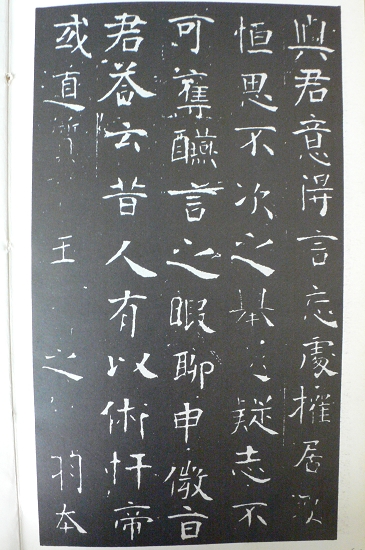 與君意淂言忘處權居
恒思不次之舉疑志不
可奪醼言之暇聊申儆
君答云昔人有以術忓帝
或道王之羽本